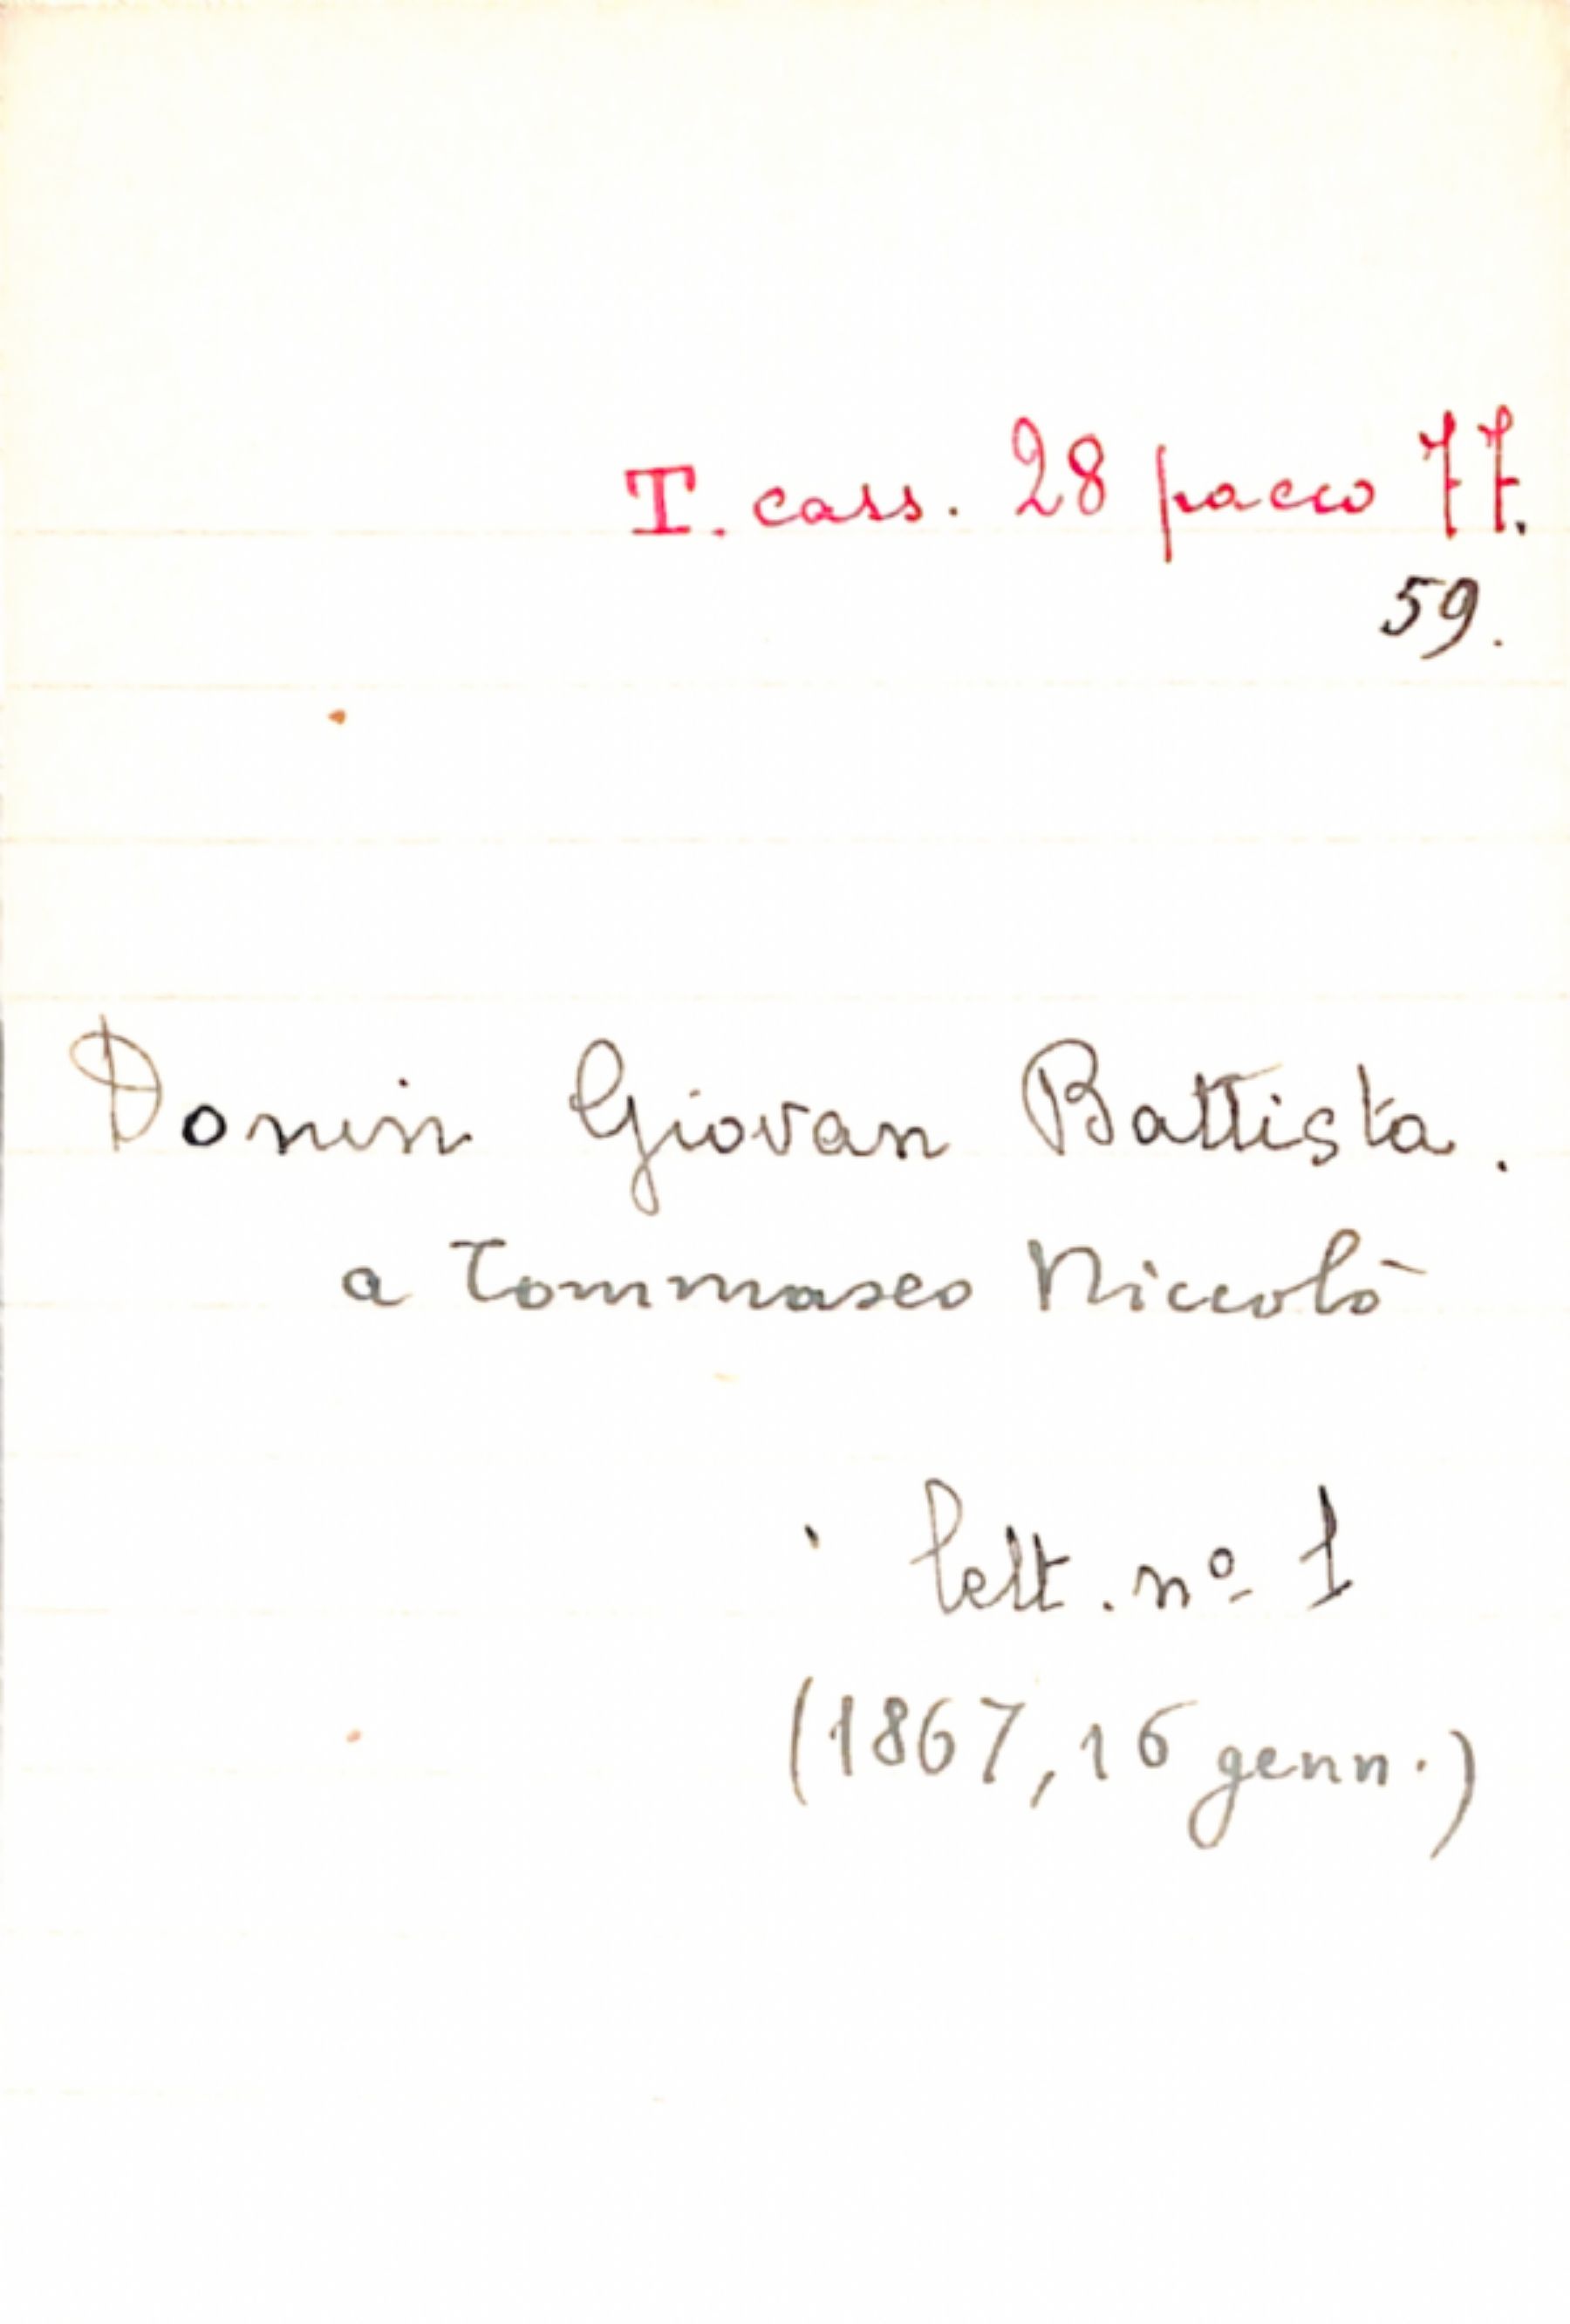 T. cass. 28 pacco 77.
59.
Donin Giovan Battista.
a Tommaseo Niccolò
lett. nº 1
(1867, 16 genn.)